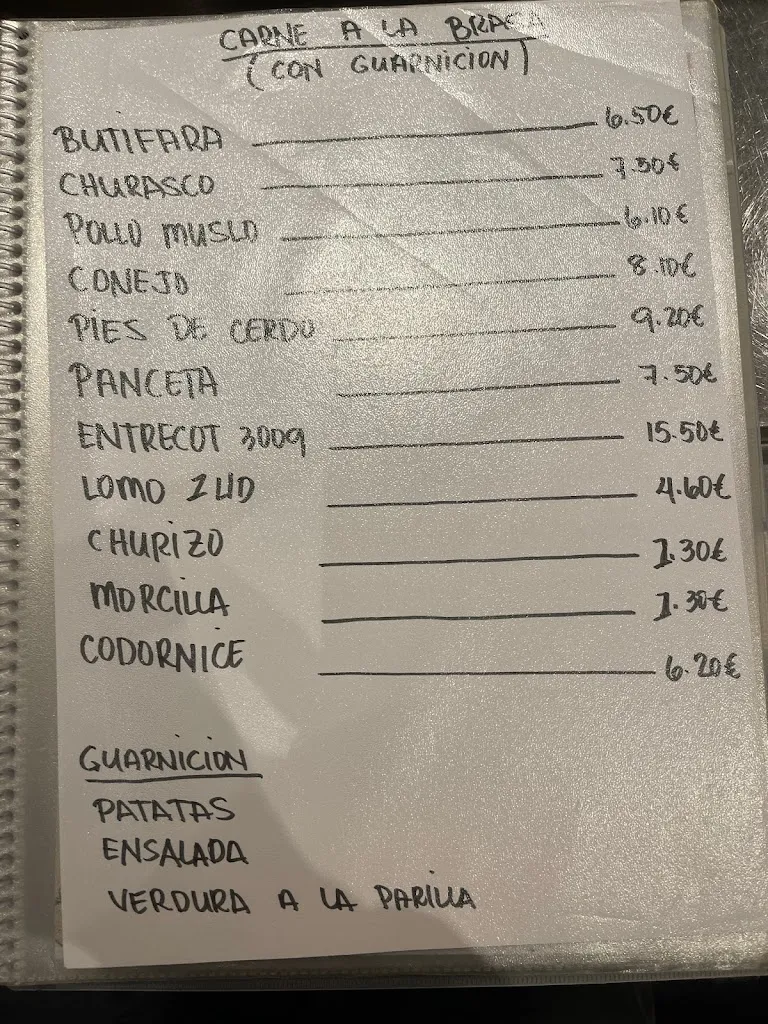 CARNE A LA BRASA
(CON GUARNICION)
BUTIFARA 6.50€
CHURASCO 7.50€
POLLO MUSLO 6.10€
CONEJO 8.10€
PIES DE CERDO 9.20€
PANCETA 7.50€
ENTRECOT 300g 15.50€
LOMO 1UD 4.60€
CHURIZO 1.30€
MORCILLA 1.30€
CODORNICE 6.20€
GUARNICION
PATATAS
ENSALADA
VERDURA A LA PARILLA